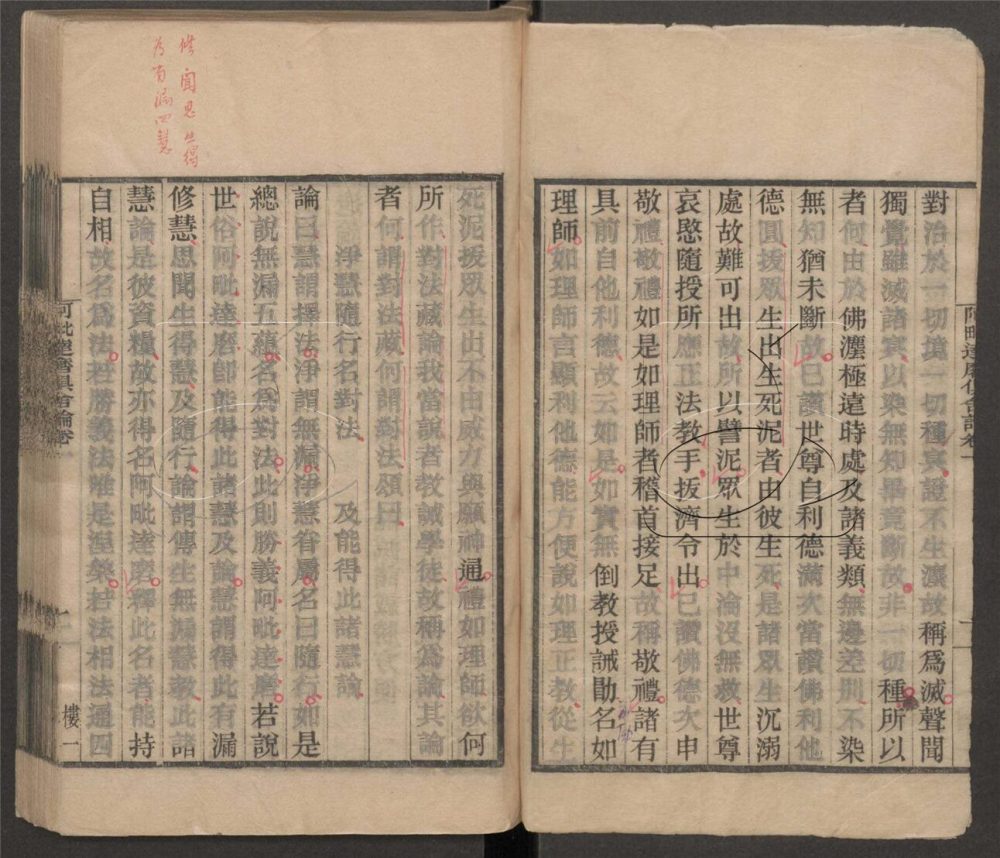 阿毗達磨俱舍論卷一
對治於一切境一切種冥證不生灋故稱爲滅聲聞
獨覺雖滅諸冥以染無知畢竟斷故非一切種所以
者何由於佛灋極遠時處及諸義類無邊差別不染
無知猶未斷故已讚世尊自利德滿次當讚佛利他
德圓拔眾生出生死泥者由彼生死是諸眾生沉溺
處故難可出故所以譬泥眾生於中淪沒無救世尊
哀愍隨授所應正法教手拔濟令出已讚佛德次申
敬禮敬禮如是如理師者稽首接足故稱敬禮諸有
具前自他利德故云如是如實無倒教授誡勗名如
理師如理師言顯利他德能方便說如理正教從生
修聞思生得
為有漏四慧
死泥拔眾生出不由威力與願神通禮如理師欲何
所作對法藏論我當說者教誡學徒故稱爲論其論
者何謂對法藏何謂對法頌曰
淨慧隨行名對法 及能得此諸慧論
論曰慧謂擇法淨謂無漏淨慧眷屬名曰隨行如是
總說無漏五蘊名爲對法此則勝義阿毗達磨若說
世俗阿毗達磨卽能得此諸慧及論慧謂得此有漏
修慧思聞生得慧及隨行論謂傳生無漏慧教此諸
慧論是彼資糧故亦得名阿毗達磨釋此名者能持
自相故名爲法若勝義法唯是涅槃若法相法通四
阿毗達磨俱舍論卷一 二 樓一